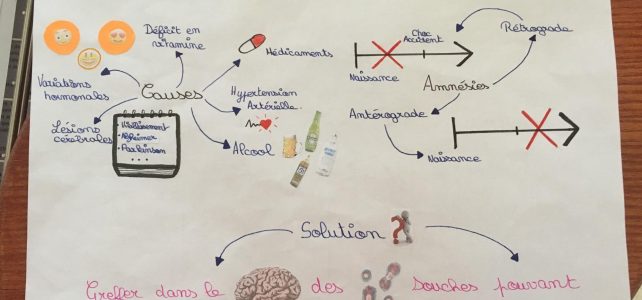 Déficit en
vitamine
Médicaments
Variations
hormonales
Causes
Hypertension
Artérielle
Lésions
cérébrales
• Vieillissement
• Alzheimer
• Parkinson
...
Alcool
Choc
Accident
Rétrograde
Naissance
Amnésies
Antérograde
Naissance
Solution
Greffer dans le des souches pouvant